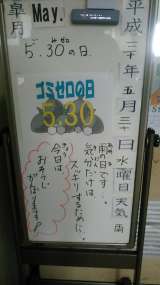 平成三十年五月三十日水曜日天気雨
皐月
May.
5.30の日
ゴミゼロの日
5.30
雨の日です。
気分だけは
スッキリするために、
今日は
おそうじ
がんばります?